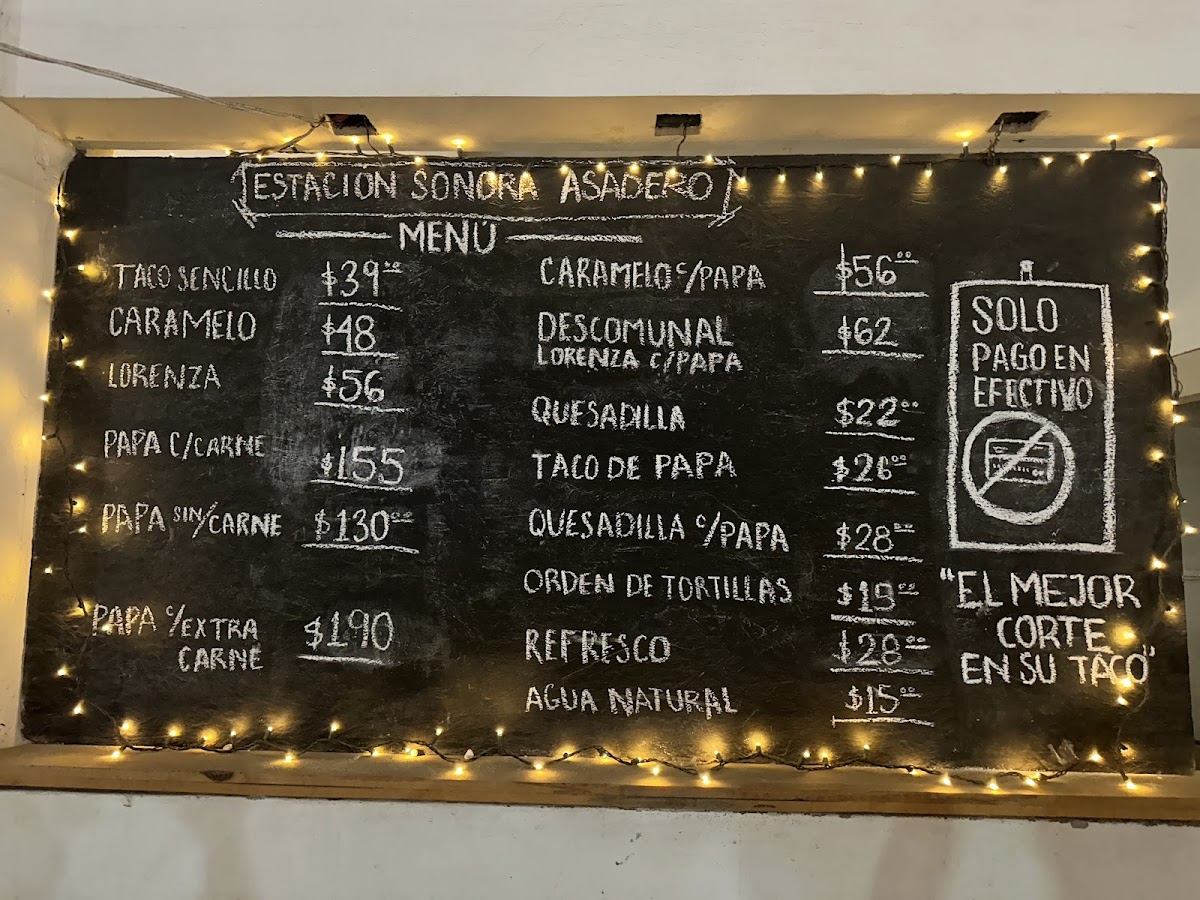 ESTACIÓN SONORA ASADERO
MENÚ
TACO SENCILLO $39.00
CARAMELO $48
LORENZA $56
PAPA C/CARNE $155
PAPA SIN/CARNE $130.00
PAPA C/EXTRA
CARNE $190
CARAMELO C/PAPA $56.00
DESCOMUNAL $62
LORENZA C/PAPA
QUESADILLA $22.00
TACO DE PAPA $26.00
QUESADILLA C/PAPA $28.00
ORDEN DE TORTILLAS $19.00
REFRESCO $28.00
AGUA NATURAL $15.00
SOLO
PAGO EN
EFECTIVO
"EL MEJOR
CORTE
EN SU TACO"